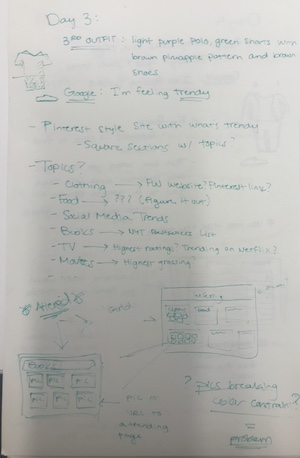 Day 3:
3RD OUTFIT: light purple polo, green shorts with
brown pineapple pattern and brown
shoes
Google: I'm feeling trendy
- Pinterest style site with whats trendy
- Square sections w/ topics?
- Topics?
- Clothing → FW website? Pinterest link?
- Food → ??? (Figure it out)
- Social Media Trends
- Books → NYT Bestsellers List
- TV → Highest rating? Trending on Netflix?
- Movies → Highest grossing
Grid
Books
pic pic pic
pic pic pic
pic =
URL to
page
? pics breaking
color contrast?
=
problem